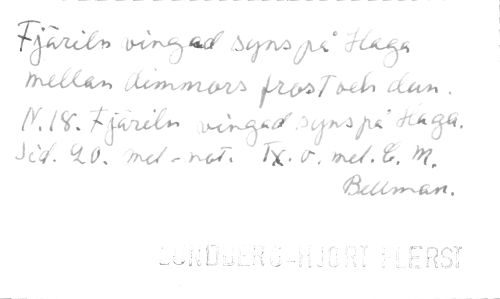 Fjäriln vingad syns på Haga
mellan dimmors frost och dun.
N. 18. Fjäriln vingad syns på Haga.
Sid. 20. mel-not. Tx. o. mel. C. M.
Bellman.
LUNDBERG-HJORT